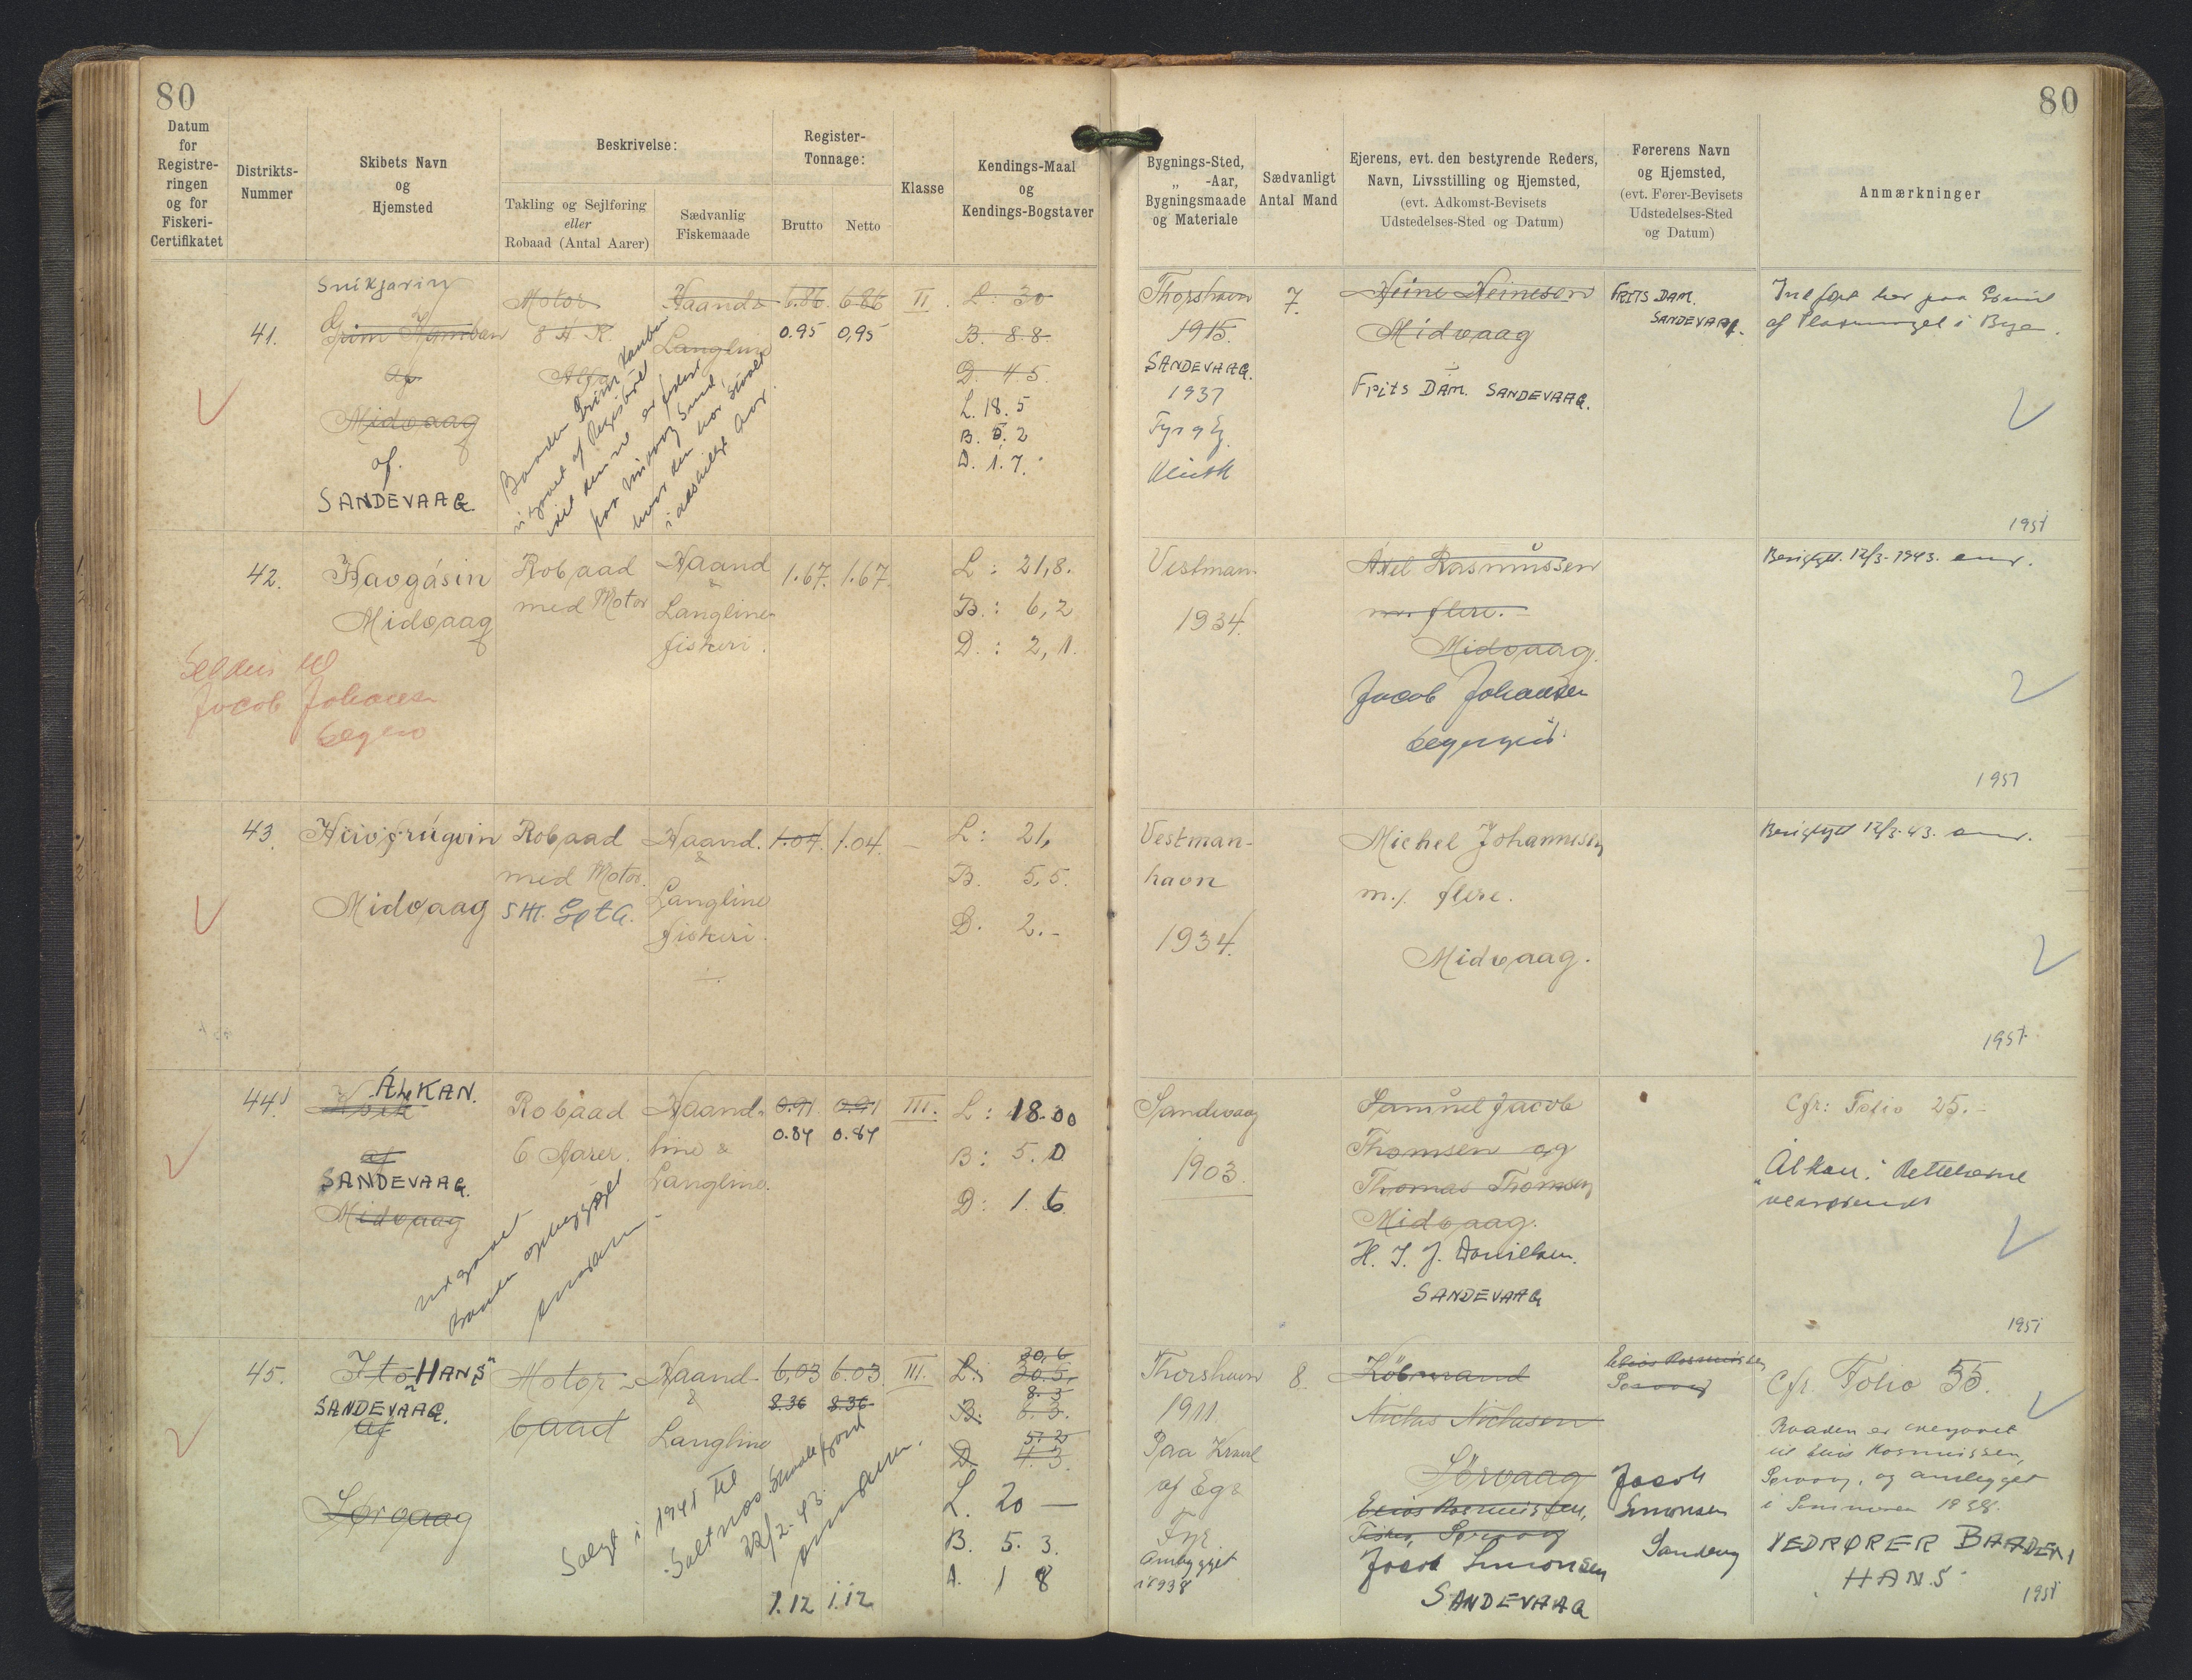 80
80
Datum
for
Registre-
ringen
og for
Fiskeri-
Certifikatet
Distrikts-
Nummer
Skibets Navn
og
Hjemsted
Beskrivelse:
Takling og Sejlføring
eller
Robaad (Antal Aarer)
Sædvanlig
Fiskemaade
Register-
Tonnage:
Brutto
Netto
Klasse
Kendings-Maal
og
Kendings-Bogstaver
Bygnings-Sted,
„ -Aar,
Bygningsmaade
og Materiale
Sædvanligt
Antal Mand
Ejerens, evt. den bestyrende Reders,
Navn, Livsstilling og Hjemsted,
(evt. Adkomst-Bevisets
Udstedelses-Sted og Datum)
Førerens Navn
og Hjemsted,
(evt. Fører-Bevisets
Udstedelses-Sted
og Datum)
Anmærkninger
41.
Snikjarin
Grim Kamban
af
Midvaag
af.
SANDEVAAG.
Motor
8 H. K.
Alfa
Haand &
Langline
Baaden Grim Kamban
udgaaet af Registret
idet den er
paa Midvaag Sand,
hvor den har staaet
i adskillige Aar.
6.86 6.86
0.95 0,95
II
L: 30
B. 8.8.
D. 4.5.
L. 18.5
B. 5.2
D. 1.7.
Thorshavn
1915.
SANDEVAAG.
1937
Fyr og Eg.
Klink
7.
Heine Heinesen
Midvaag
FRITS DAM. SANDEVAAG.
FRITS DAM.
SANDEVAAG.
Indført her paa Grund
af Pladsmangel i Bogen.
1951
42.
Havgásin
Midvaag
Robaad
med Motor
Haand
&
Langline
fiskeri.
1.67. 1.67.
L: 21,8.
B.: 6,2
D.: 2,1.
til
Jacob Johansen
Vestman.
1934.
Axel Rasmussen
m. flere.
Midvaag.
Jacob Johansen
Berigtiget. 12/3-1943.
1951
43.
Havfrúgvin
Midvaag
Robaad
med Motor.
5 HK. Göta.
Haand.
&
Langline
fiskeri.
1.04. 1.04.
L: 21,
B. 5,5.
D. 2.-
Vestman-
havn
1934.
Michel Johannesen
m./ flere.
Midvaag.
Berigtiget 12/3.43.
1951.
44.
ÁLKAN.
af
SANDEVAAG.
Midvaag
Robaad
6 Aarer.
Haand-
line &
Langline.
udgaaet
Baaden ophugget
0.91 0.91
0.84 0.84
III.
L: 18.00
B: 5.0
D: 1.6.
Sandevaag
1903.
Samuel Jacob
Thomsen og
Thomas Thomsen
Midvaag.
H. J. J. Danielsen.
SANDEVAAG
Cfr: Folio 25.-
„Álkan". Rettelserne
vedrørende
1951
45.
Ito HANS"
SANDEVAAG.
af
Sørvaag
Motor-
baad
Haand-
&
Langline
Solgt i 1941 til
Saltnes Skaalefjord
22/2-43.
6,03 6.03
8.36 8.36
1.12 1.12
III.
30,6
L: 30.5,
8.5
B: 8.3.
D
L. 20 —
B. 5.3.
D. 1 8
Thorshavn
1911.
Paa Kravl
af Eg &
Fyr.
Ombygget
i 1938
8.
Købmand
Niclas Niclasen
Sørvaag
Elias Rasmussen,
Fisker, Sørvaag
Jacob Simonsen
SANDEVAAG
Elias Rasmussen
Sørvaag
Jacob
Simonsen
Sandevag
Cfr. Folio 55.
Baaden er overgaaet
til Elias Rasmussen,
Sørvaag, og ombygget
i Sommeren 1938.
VEDRØRER BAADEN
HANS
1951